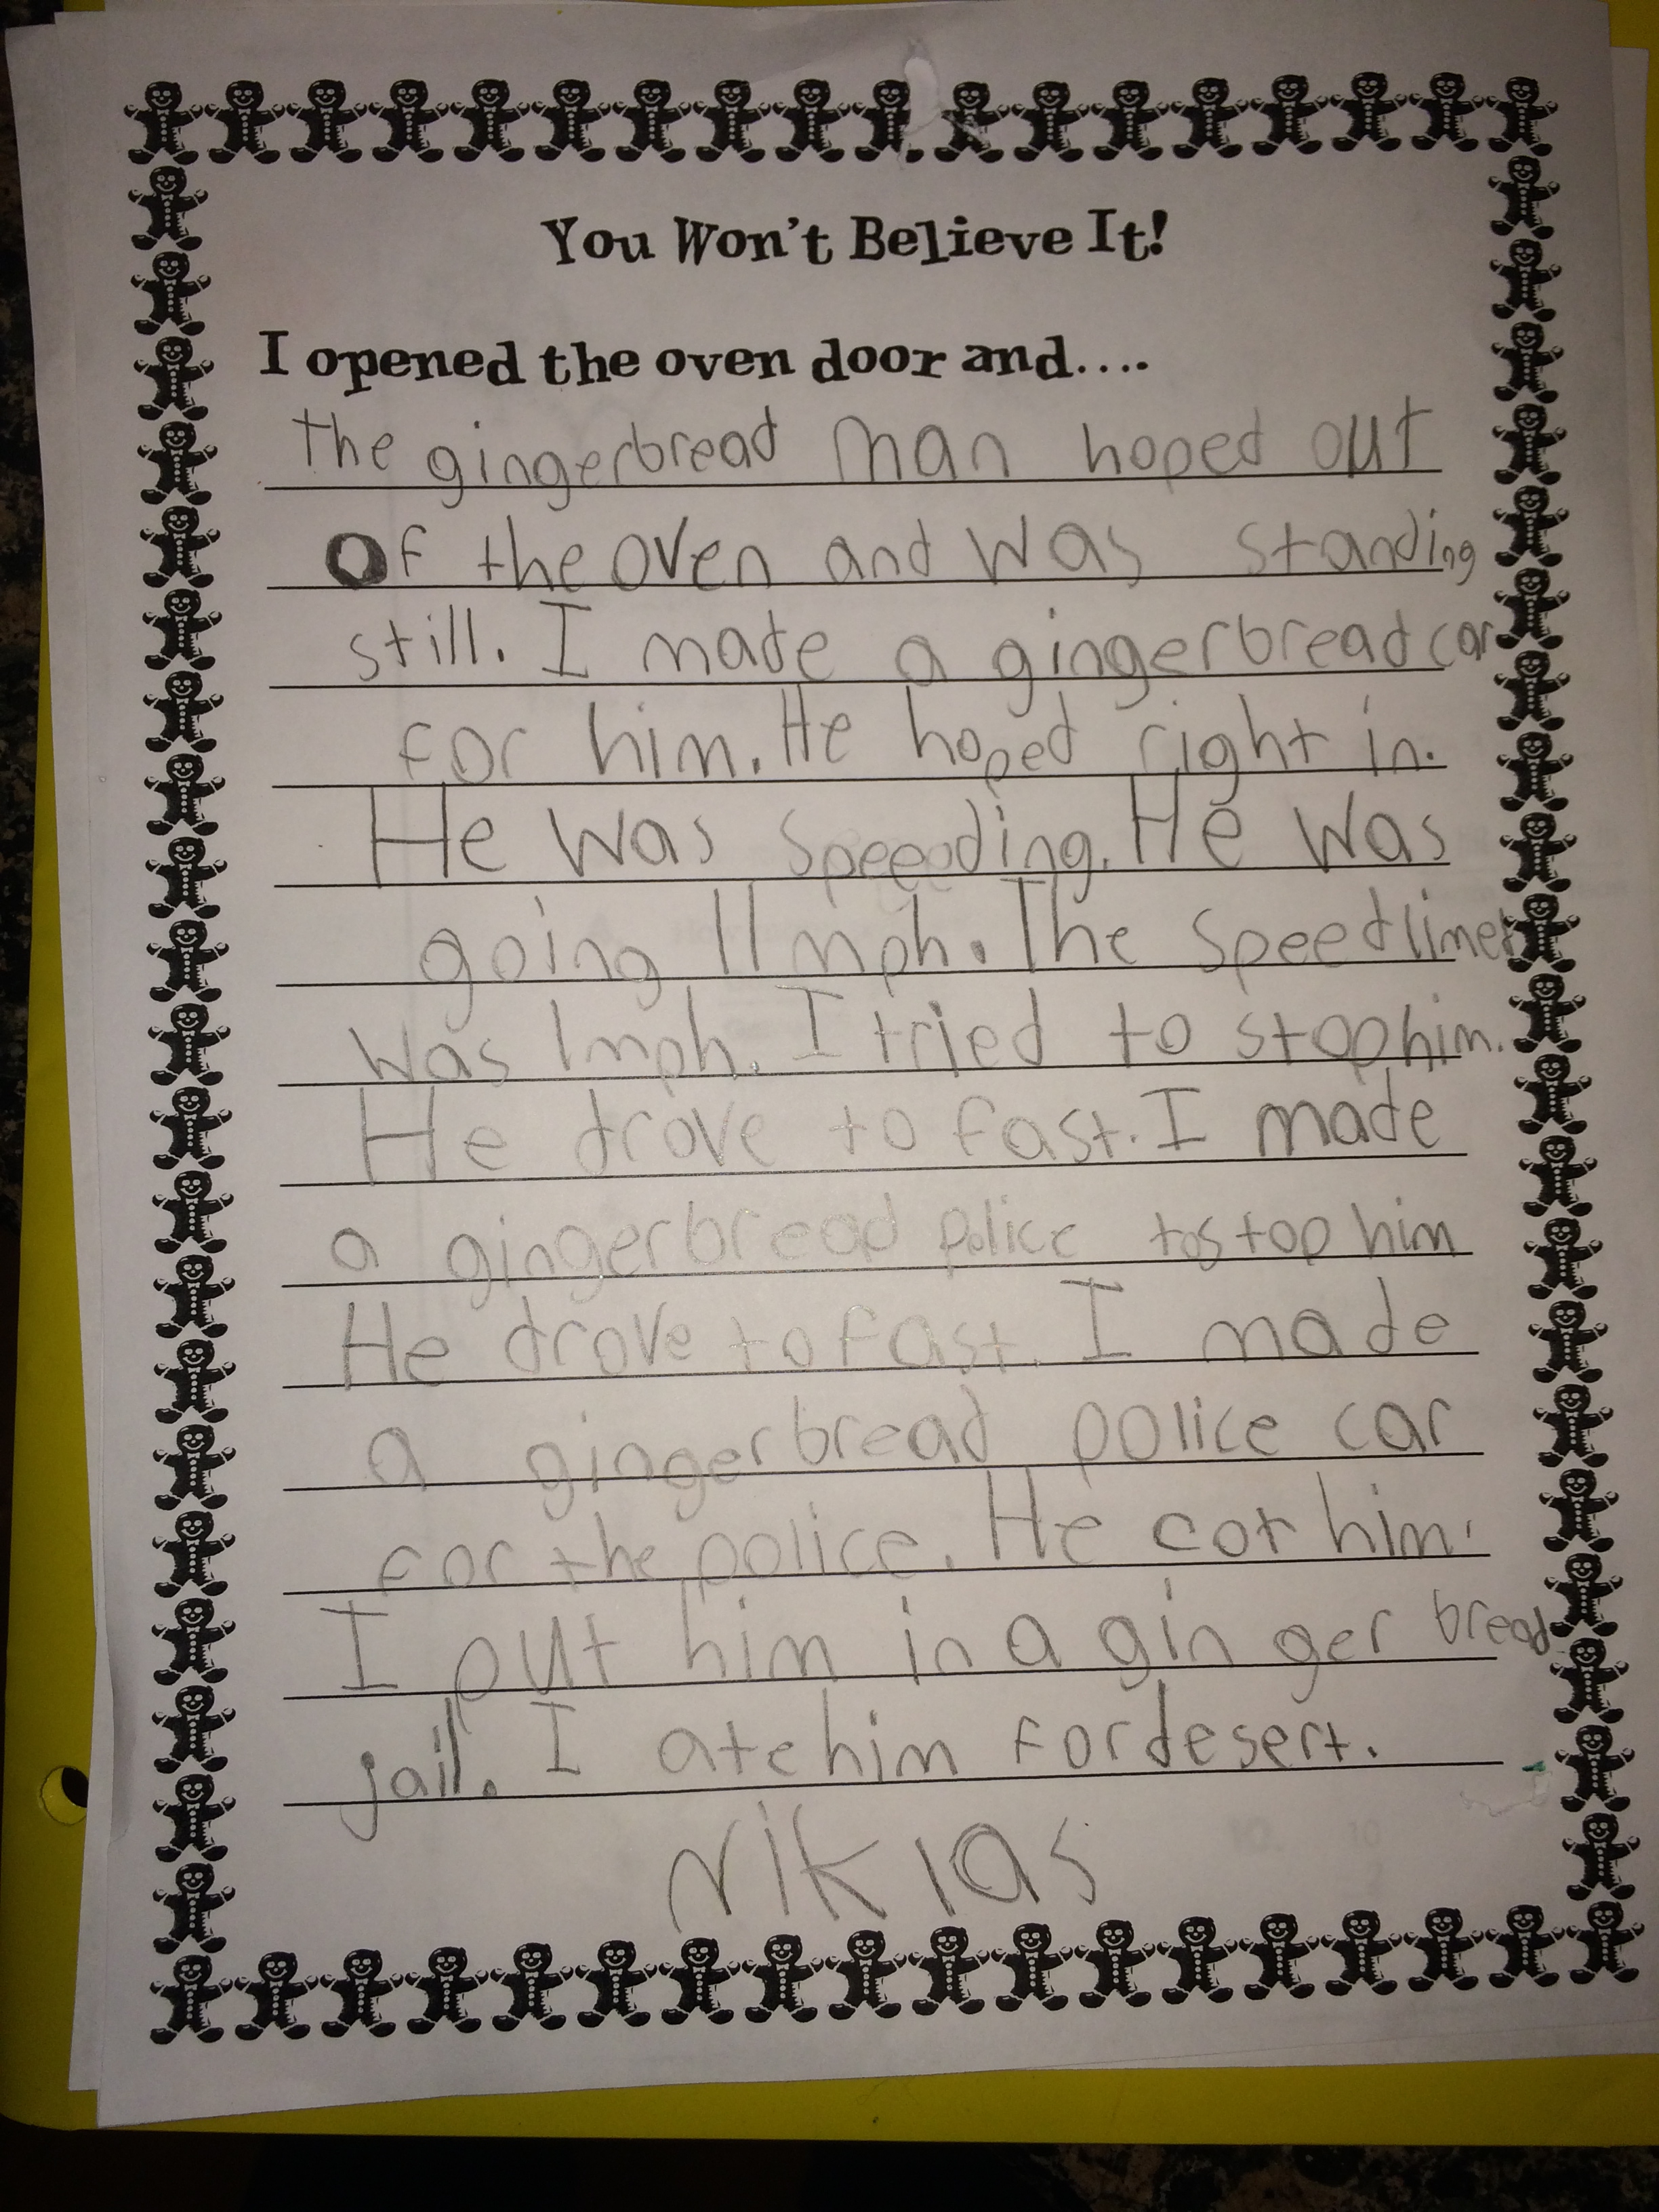 You Won't Believe It!
I opened the oven door and....
the gingerbread man hoped out
of the oven and was standing
still. I made a gingerbread car
for him. He hoped right in.
He was speeding. He was
going 11 mph. The speed limet
was 1 mph. I tried to stop him.
He drove to fast. I made
a gingerbread police to stop him
He drove to fast. I made
a gingerbread police car
for the police. He cot him.
I put him in a ginger bread
jail. I ate him for desert.
Niklas